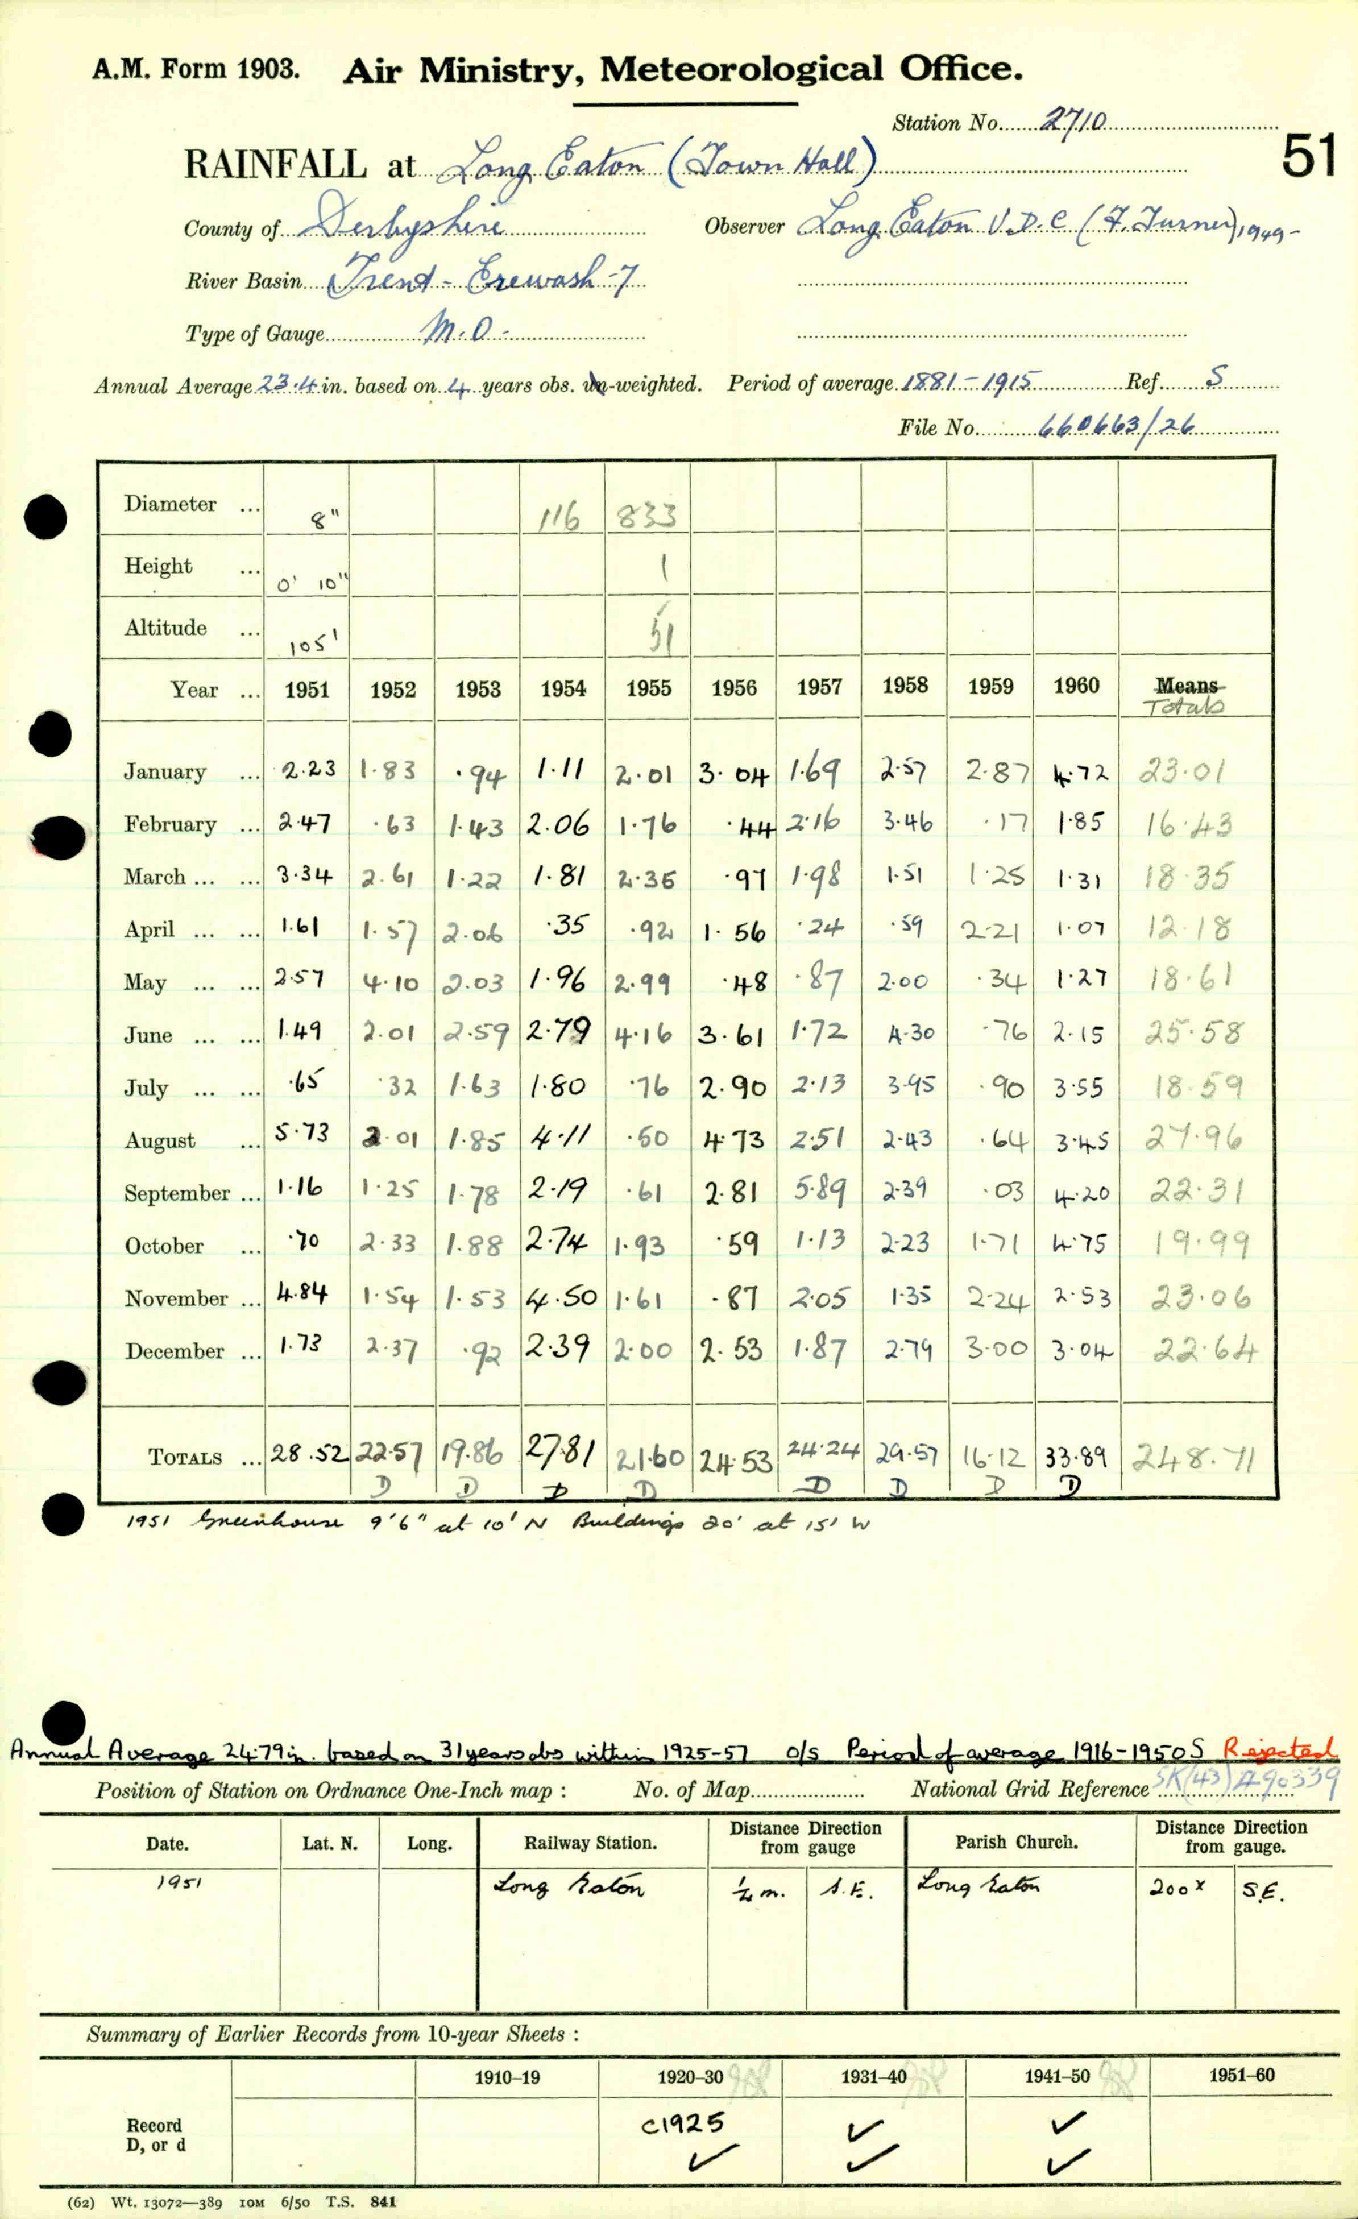 A.M. Form 1903. Air Ministry, Meteorological Office.
Station No. 2710
51
RAINFALL at Long Eaton (Town Hall)
County of Derbyshire Observer Long Eaton U.D.C (F. Turner) 1949-
River Basin Trent - Erewash - 7
Type of Gauge M.O.
Annual Average 23.4 in. based on 4 years obs. un-weighted. Period of average 1881-1915 Ref. S
File No. 660663/26
Diameter ... 8" 116 833
Height ... 0' 10" 1
Altitude ... 105' 51
Year ... 1951 1952 1953 1954 1955 1956 1957 1958 1959 1960 Means
Totals
January ... 2.23 1.83 .94 1.11 2.01 3.04 1.69 2.57 2.87 4.72 23.01
February ... 2.47 .63 1.43 2.06 1.76 .44 2.16 3.46 .17 1.85 16.43
March ... ... 3.34 2.61 1.22 1.81 2.35 .97 1.98 1.51 1.25 1.31 18.35
April ... ... 1.61 1.57 2.06 .35 .92 1.56 .24 .59 2.21 1.07 12.18
May ... ... 2.57 4.10 2.03 1.96 2.99 .48 .87 2.00 .34 1.27 18.61
June ... ... 1.49 2.01 2.59 2.79 4.16 3.61 1.72 4.30 .76 2.15 25.58
July ... ... .65 .32 1.63 1.80 .76 2.90 2.13 3.95 .90 3.55 18.59
August ... 5.73 2.01 1.85 4.11 .50 4.73 2.51 2.43 .64 3.45 27.96
September ... 1.16 1.25 1.78 2.19 .61 2.81 5.89 2.39 .03 4.20 22.31
October ... .70 2.33 1.88 2.74 1.93 .59 1.13 2.23 1.71 4.75 19.99
November ... 4.84 1.54 1.53 4.50 1.61 .87 2.05 1.35 2.24 2.53 23.06
December ... 1.73 2.37 .92 2.39 2.00 2.53 1.87 2.79 3.00 3.04 22.64
TOTALS ... 28.52 22.57 19.86 27.81 21.60 24.53 24.24 29.57 16.12 33.89 248.71
D D D D D D D D
1951 Greenhouse 9'6" at 10' N Buildings 20' at 15' W
Annual Average 24.79 in. based on 31 years obs within 1925-57 o/s Period of average 1916-1950 S Rejected
Position of Station on Ordnance One-Inch map : No. of Map National Grid Reference SK(43) 490339
Date. Lat. N. Long. Railway Station. Distance from Direction gauge Parish Church. Distance from Direction gauge.
1951 Long Eaton ¼ m. S.E. Long Eaton 200x S.E.
Summary of Earlier Records from 10-year Sheets :
1910–19 1920–30 1931–40 1941–50 1951–60
Record c1925 ✓ ✓
D, or d ✓ ✓ ✓
(62) Wt. 13072—389 10M 6/50 T.S. 841